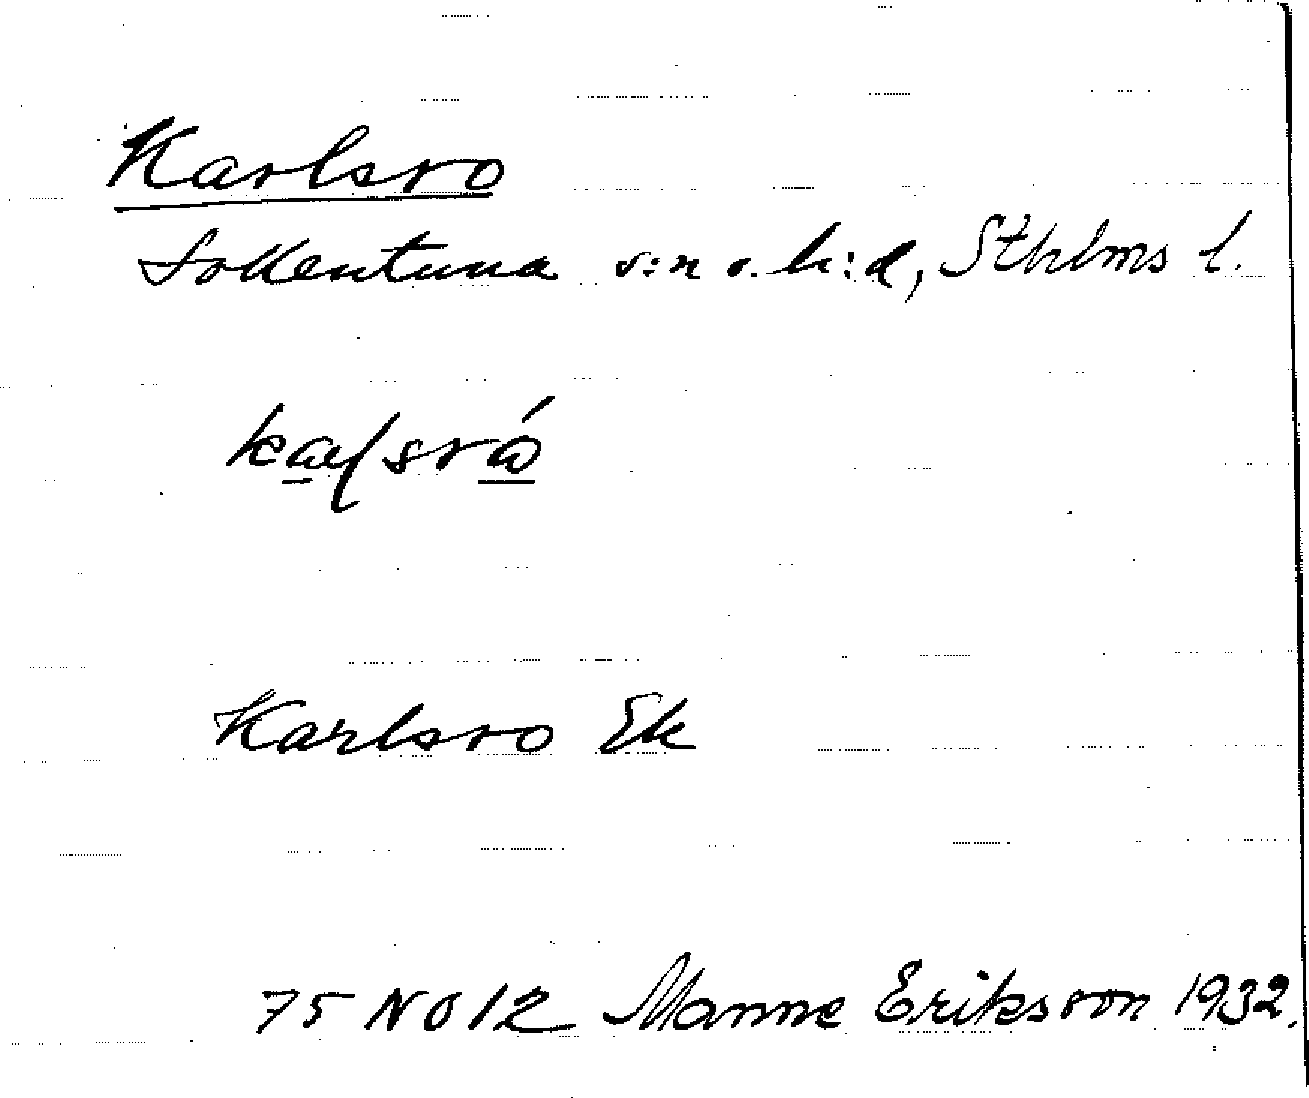 Karlsro
Sollentuna s:n o. h:d, Sthlms l.
Karlsro Ek
75 NO 12 Manne Eriksson 1932.